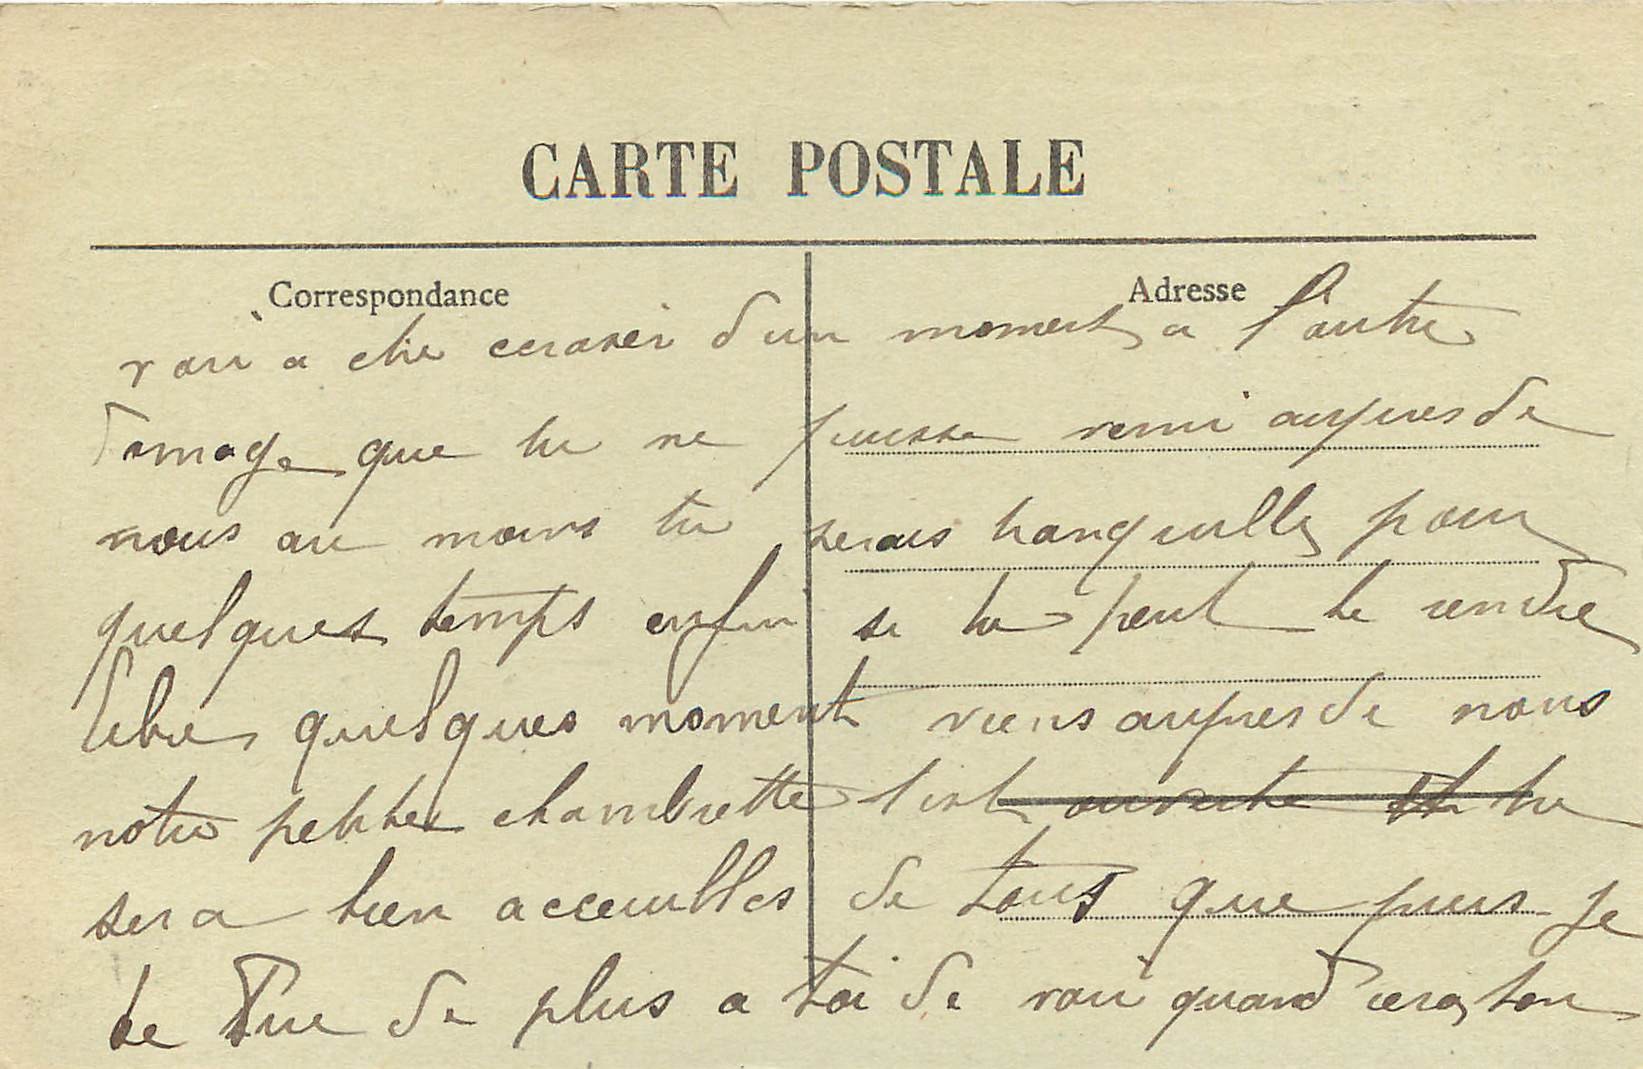 CARTE POSTALE
Correspondance
Adresse
voir a etre ecraser d'un moment a l'autre
domage que tu ne puisse venir aupres de
nous au moins tu serais tranquille pour
quelques temps enfin si tu peut te rendre
libre quelques moment viens aupres de nous
notre petite chambrette t'est ouverte et tu
sera bien acceuilles de tous que puis-je
te dire de plus a toi de voir quand